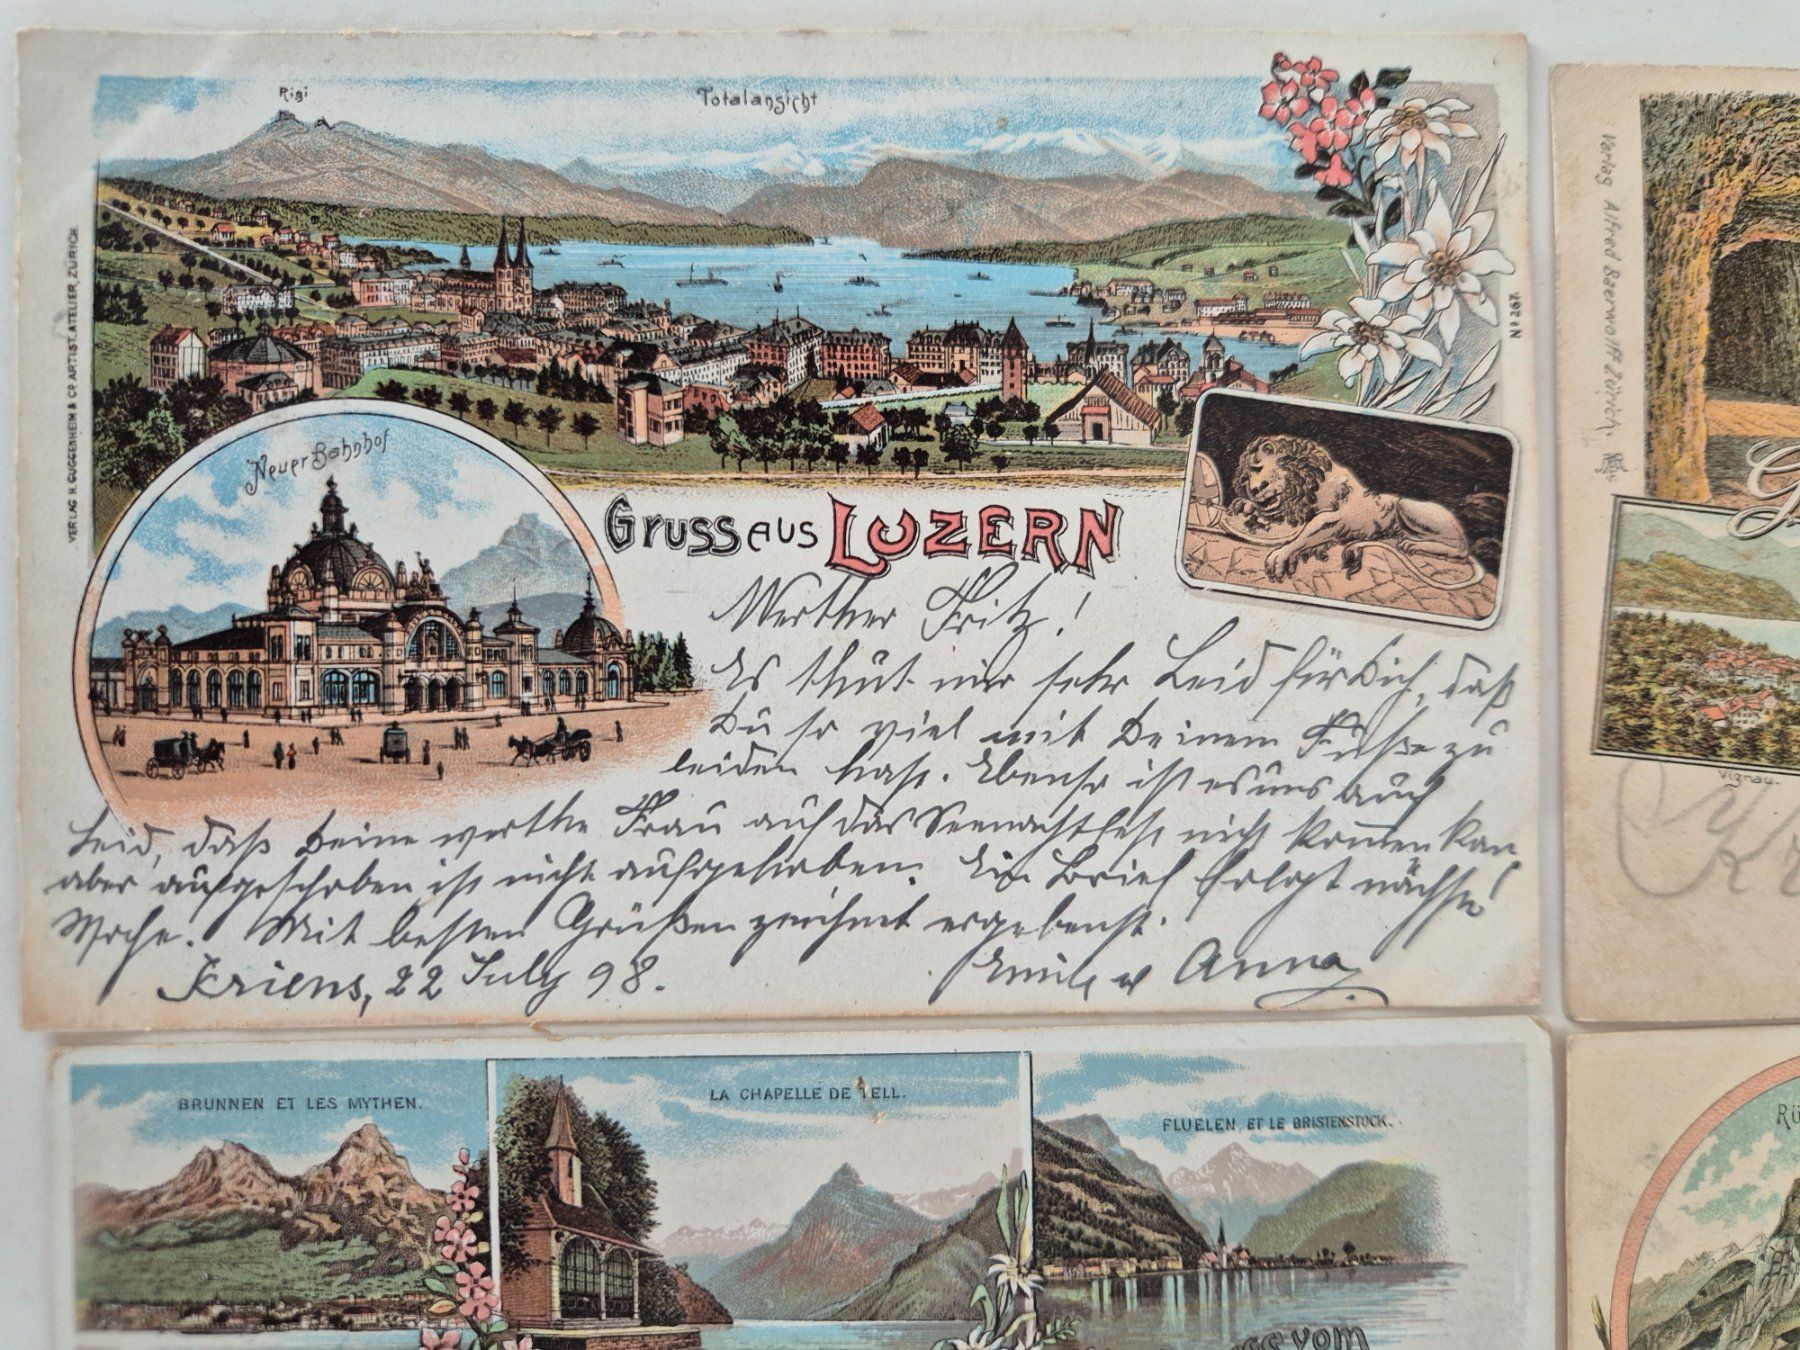 Rigi
Totalansicht
VERLAG H. GUGGENHEIM & Co ARTIST. ATELIER, ZÜRICH.
No 267.
Neuer Bahnhof
Gruss aus LUZERN
Werther Fritz!
Es thut mir sehr Leid für Dich, daß
Du so viel mit Deinem Fuße zu
leiden hast. Ebenso ist es uns auch
Leid, daß Deine werthe Frau auf das Seenachtfest nicht kommen kan
aber aufgeschoben ist nicht aufgehoben. Ein Brief folgt nächste
Woche. Mit besten Grüßen zeichnet ergebenst.
Kriens, 22 July 98. Emil u Anna
Verlag Alfred Baerwolff Zürich.
G
Viznau.
BRUNNEN ET LES MYTHEN.
LA CHAPELLE DE TELL.
FLUELEN ET LE BRISTENSTOCK.
VOM
RÜ